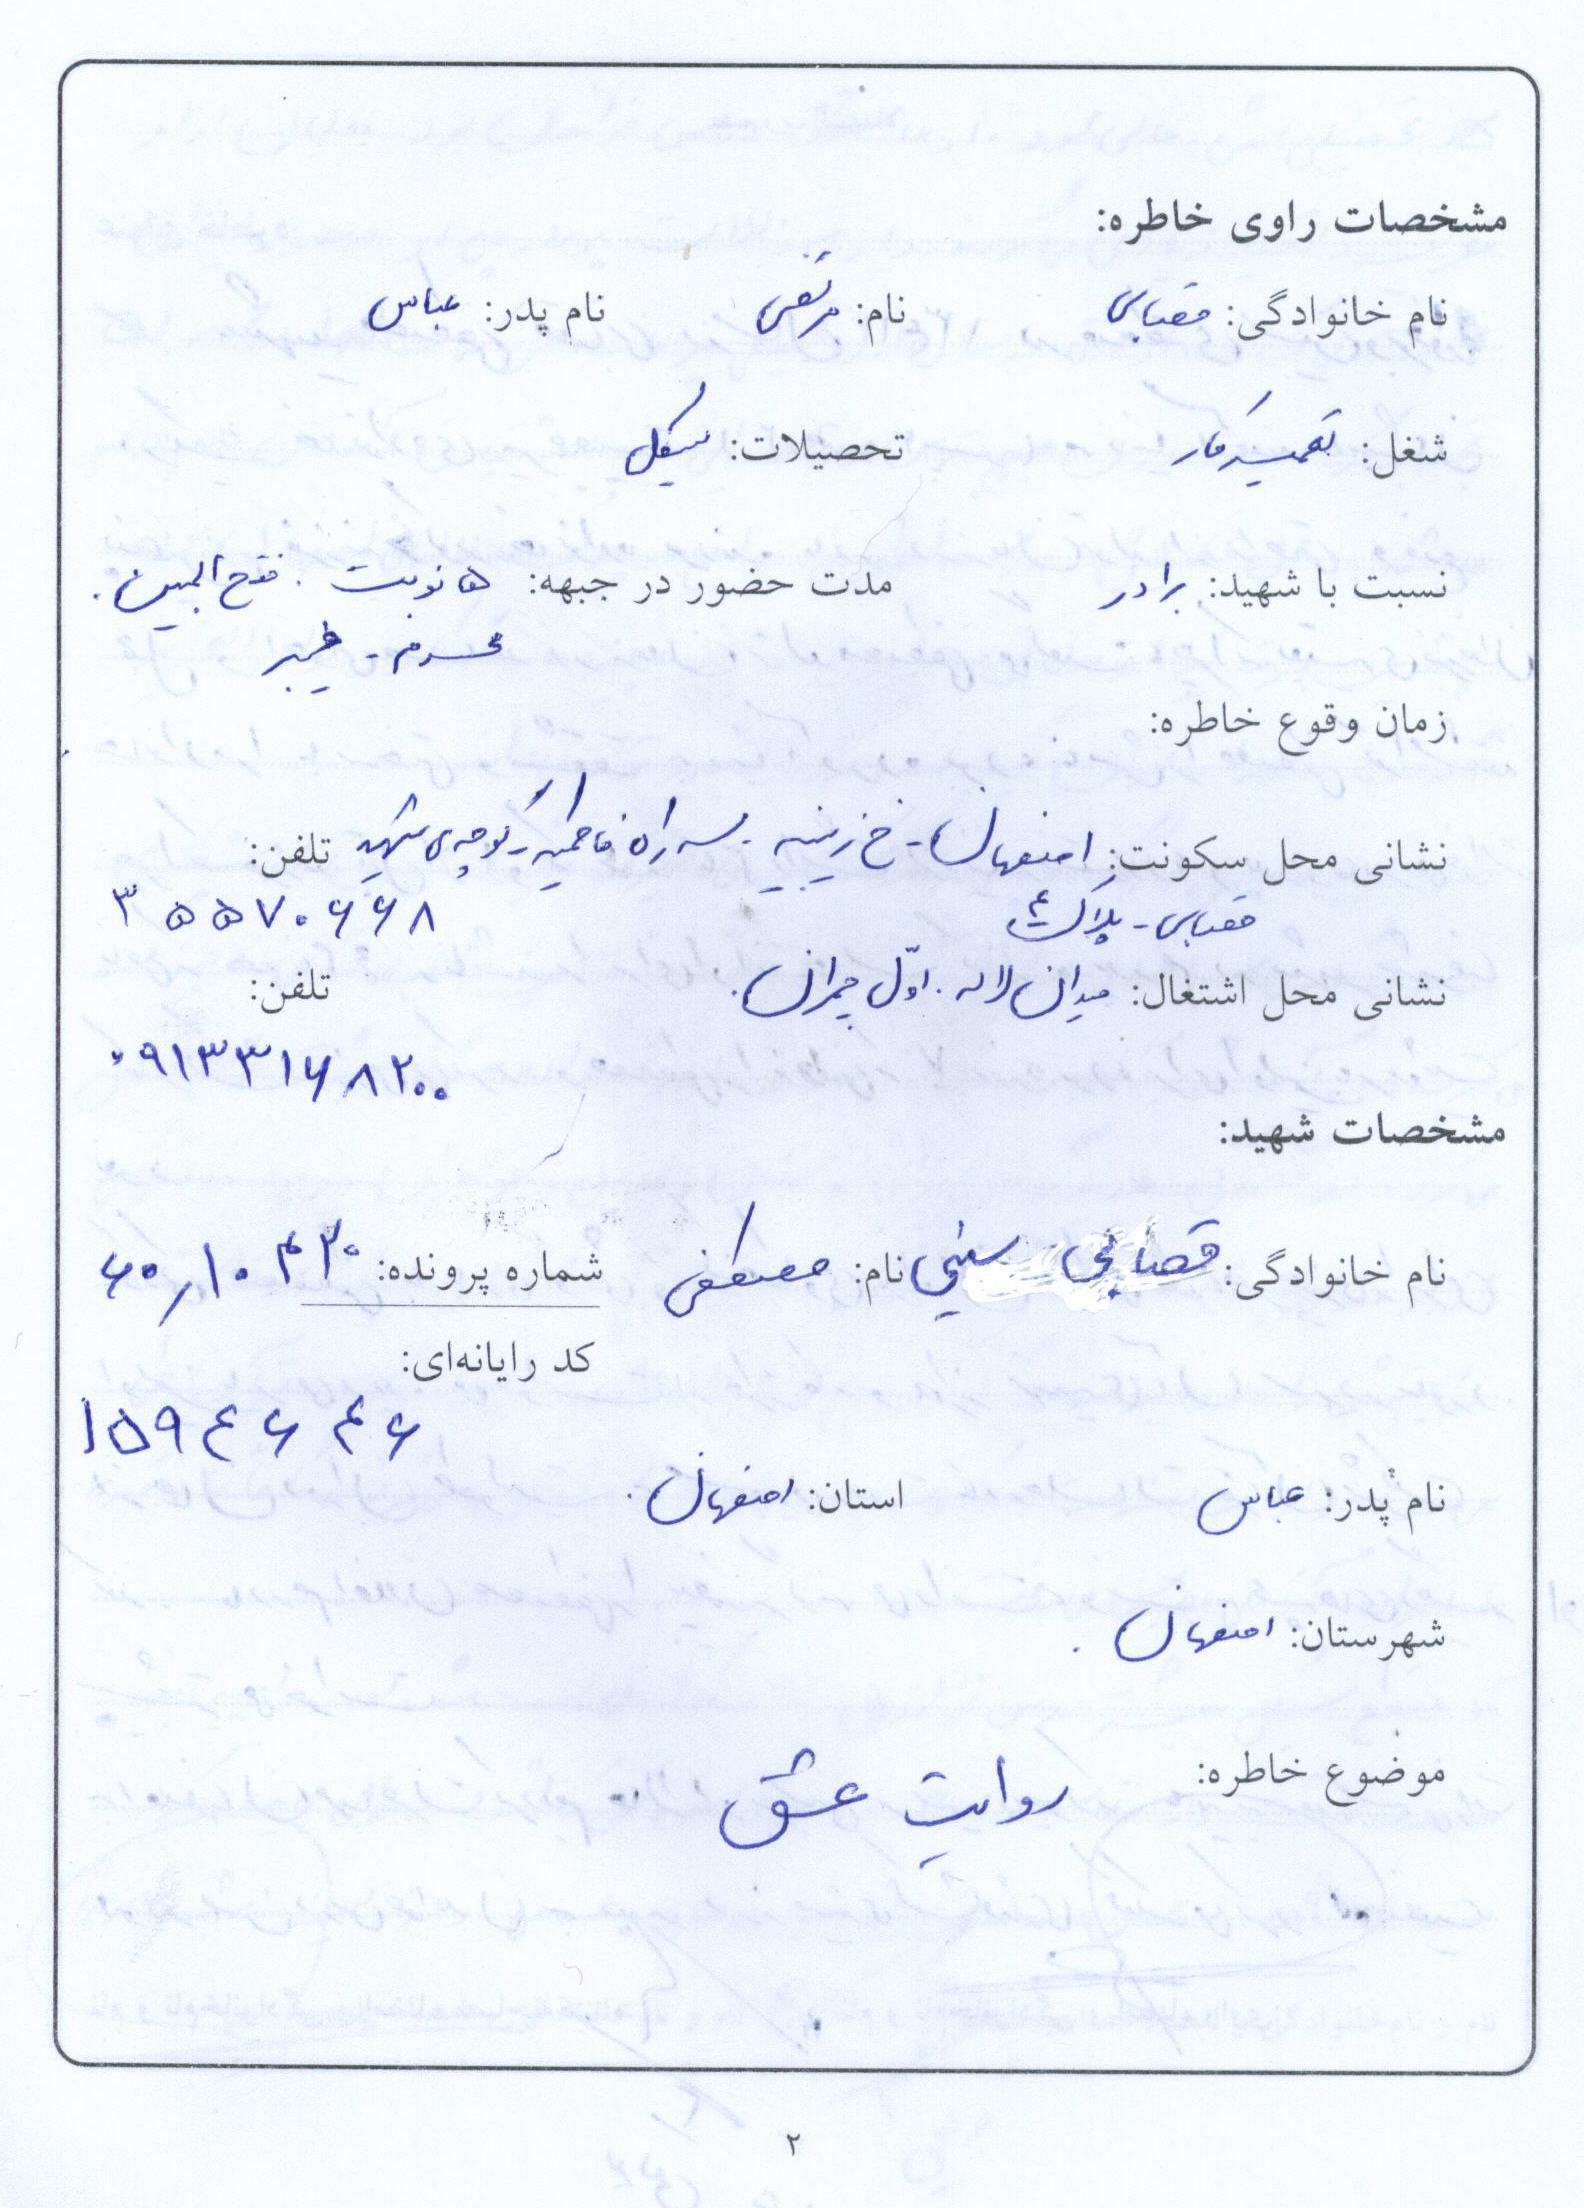 مشخصات راوی خاطره:
نام خانوادگی: قصابی نام: مرتضی نام پدر: عباس
شغل: تعمیرکار تحصیلات: سیکل
نسبت با شهید: برادر مدت حضور در جبهه: ۵ نوبت . فتح المبین .
محرم - خیبر
زمان وقوع خاطره:
نشانی محل سکونت: اصفهان - خ زینبیه - سه راه فاطمیه - کوچه‌ی شهید تلفن:
قصابی - پلاک ۴ ۳۵۵۷۰۶۶۸
نشانی محل اشتغال: میدان لاله . اوّل چمران . تلفن:
۰۹۱۳۳۱۶۸۲۰۰
مشخصات شهید:
نام خانوادگی: قصابی سینی نام: مصطفی شماره پرونده: ۶۰٫۱۰۴۲۰
کد رایانه‌ای:
۱۵۹۴۶۴۶
نام پدر: عباس استان: اصفهان .
شهرستان: اصفهان .
موضوع خاطره: روایت عشق
۲